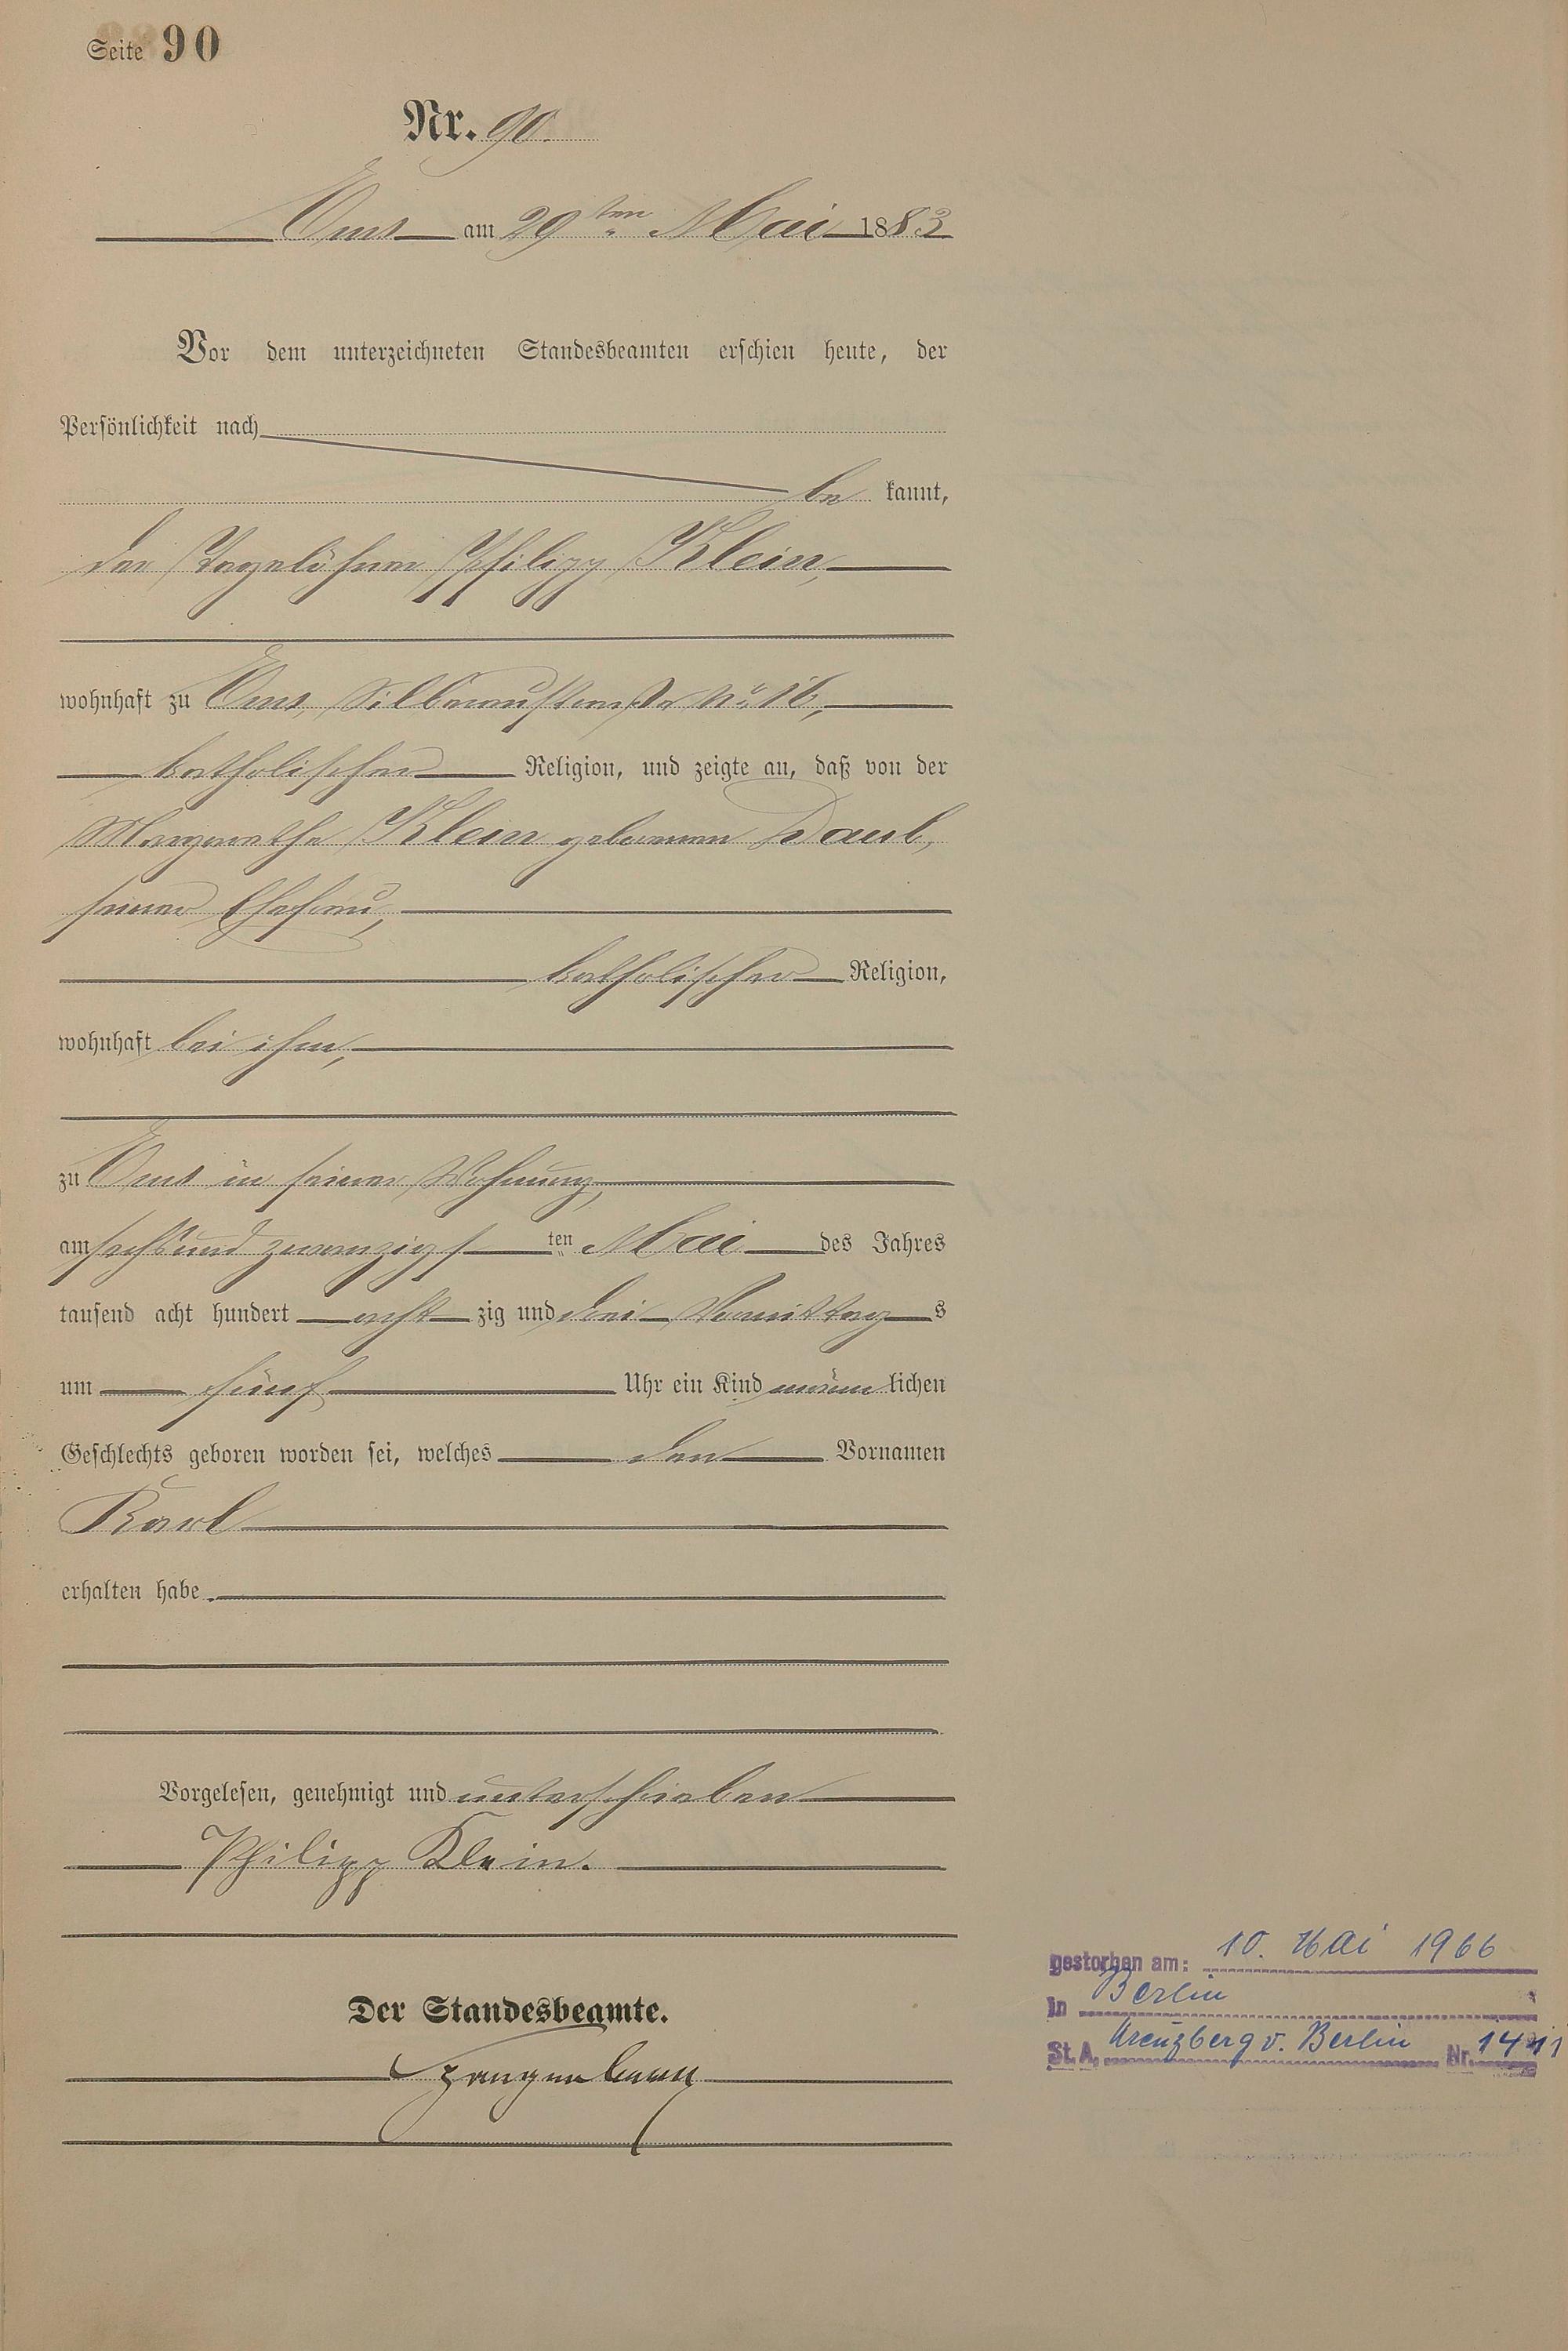 Seite 90
Nr. 90.
Ems am 29ten Mai 1883
Vor dem unterzeichneten Standesbeamten erschien heute, der
Persönlichkeit nach
be kannt,
der Tagelöhner Philipp Klein,
wohnhaft zu Ems, Silberaustraße No 16,
katholischer Religion, und zeigte an, daß von der
Margarethe Klein geborenen Daub,
seiner Ehefrau,
katholischer Religion,
wohnhaft bei ihm,
zu Ems in seiner Wohnung,
am sechs und zwanzigs ten Mai des Jahres
tausend acht hundert acht zig und drei Vormittag s
um fünf Uhr ein Kind männ lichen
Geschlechts geboren worden sei, welches den Vornamen
Karl
erhalten habe.
Vorgelesen, genehmigt und unterschrieben
Philipp Klein.
Der Standesbeamte.
gestorben am: 10. Mai 1966
in Berlin
St. A. Kreuzberg v. Berlin Nr.